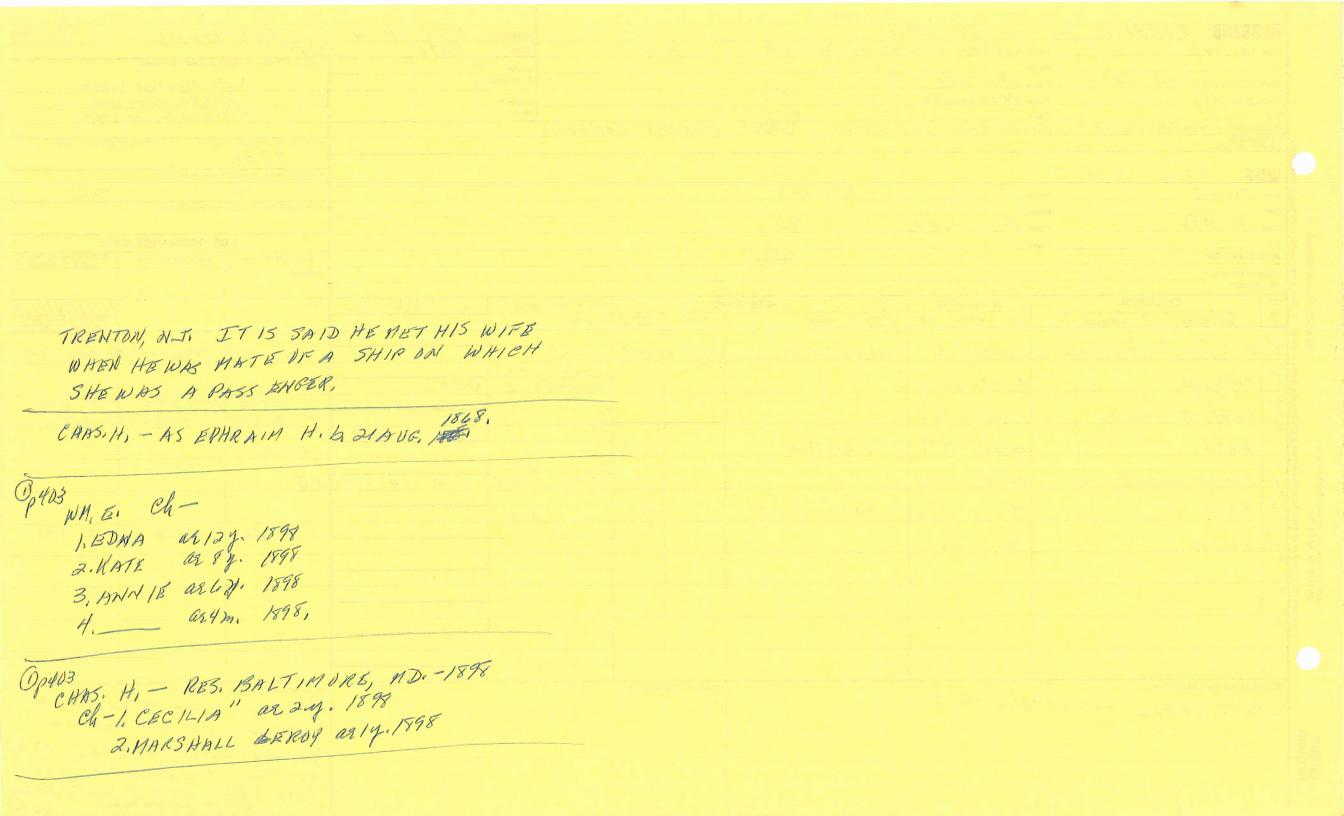 TRENTON, N.J. IT IS SAID HE MET HIS WIFE
WHEN HE WAS MATE OF A SHIP ON WHICH
SHE WAS A PASSENGER.
CHAS. H. — AS EPHRAIM H. b 21 AUG. 1868.
① p403
WM. E. Ch—
1. EDNA ae 12 y. 1898
2. KATE ae 8 y. 1898
3. ANNIE ae 6 y. 1898
4. ____ ae 4 m. 1898.
① p403
CHAS. H. — RES. BALTIMORE, MD. - 1898
Ch-1. CECILIA " ae 2 y. 1898
2. MARSHALL LEROY ae 1 y. 1898